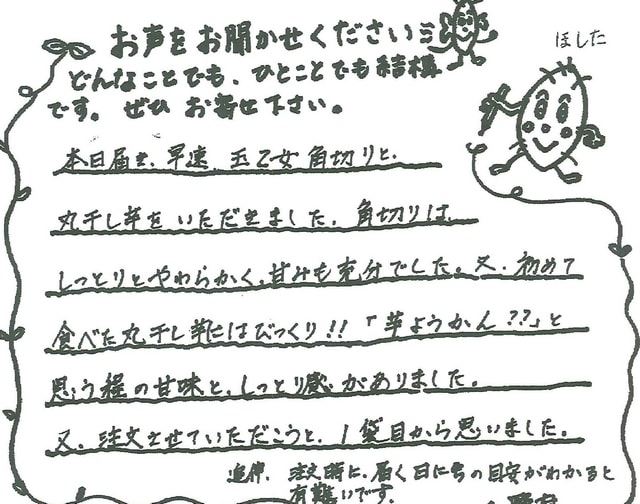 お声をお聞かせください
ほした

どんなことでも、ひとことでも結構
です。ぜひ お寄せ下さい。
本日届き、早速 玉乙女 角切りと、
丸干し芋をいただきました。角切りは
しっとりとやわらかく、甘みも充分でした。又、初めて
食べた丸干し芋にはびっくり!!「芋ようかん??」と
思う程の甘味と、しっとり感がありました。
又、注文させていただこうと、1袋目から思いました。
追伸、注文時に、届く日にちの目安がわかると
有難いです。